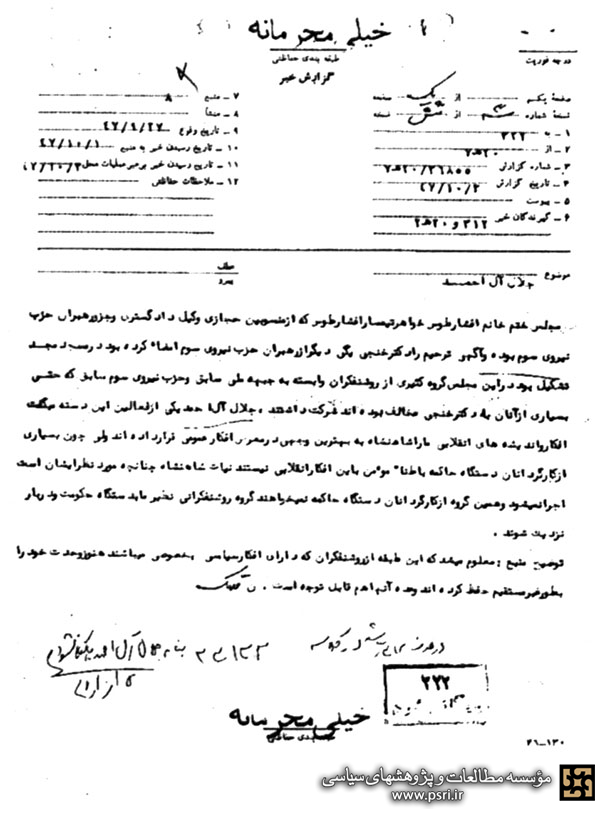 خیلی محرمانه
طبقه بندی حفاظتی
گزارش خبر
درجه فوریت
صفحه یکم از یک صفحه
نسخه شماره از نسخه
۱ - به ۳۲۲
۲ - از ۲۰هـ۷
۳ - شماره گزارش ۲۰/۲۶۸۵۵هـ۷
۴ - تاریخ گزارش ۴۷/۱۰/۲
۵ - پیوست
۶ - گیرندگان خبر ۳۱۲ و ۲۰هـ۲
۷ - منبع ۸
۸ - منشأ
۹ - تاریخ وقوع
۱۰ - تاریخ رسیدن خبر به منبع ۴۷/۱۰/۱
۱۱ - تاریخ رسیدن خبر برهبر عملیات محل
۱۲ - ملاحظات حفاظتی
موضوع جلال آل احمد
عطف
پیرو
مجلس ختم خانم افشارطوس خواهر تیمسار افشارطوس که از منسوبین حجازی وکیل دادگستری و جزو رهبران حزب
نیروی سوم بوده و آگهی ترحیم را دکتر خنجی یکی دیگر از رهبران حزب نیروی سوم امضاء کرده بود در مسجد مجد
تشکیل بود در این مجلس گروه کثیری از روشنفکران وابسته به جبهه ملی سابق و حزب نیروی سوم سابق که حتی
بسیاری از آنان با دکتر خنجی مخالف بوده اند شرکت داشتند ، جلال آل احمد یکی از فعالین این دسته میگفت
افکار و اندیشه های انقلابی ما را شاهنشاه به بهترین وجهی در معرض افکار عمومی قرار داده اند ولی چون بسیاری
از کارگردانان دستگاه حاکمه باطناً مومن باین افکار انقلابی نیستند نیات شاهنشاه چنانچه مورد نظرایشان است
اجرا نمیشود و همین گروه از کارگردانان دستگاه حاکمه نمیخواهند گروه روشنفکرانی نظیر ما بدستگاه حکومت و دربار
نزدیک شوند .
توضیح منبع : معلوم میشد که این طبقه از روشنفکران که دارای افکار سیاسی بخصوصی میباشند هنوز وحدت خود را
بطور غیر مستقیم حفظ کرده اند وعده آنها هم قابل توجه است .
۳۲۲
خیلی محرمانه
طبقه بندی حفاظتی
۲۱-۱۳۰
مؤسسه مطالعات و پژوهشهای سیاسی
www.psri.ir